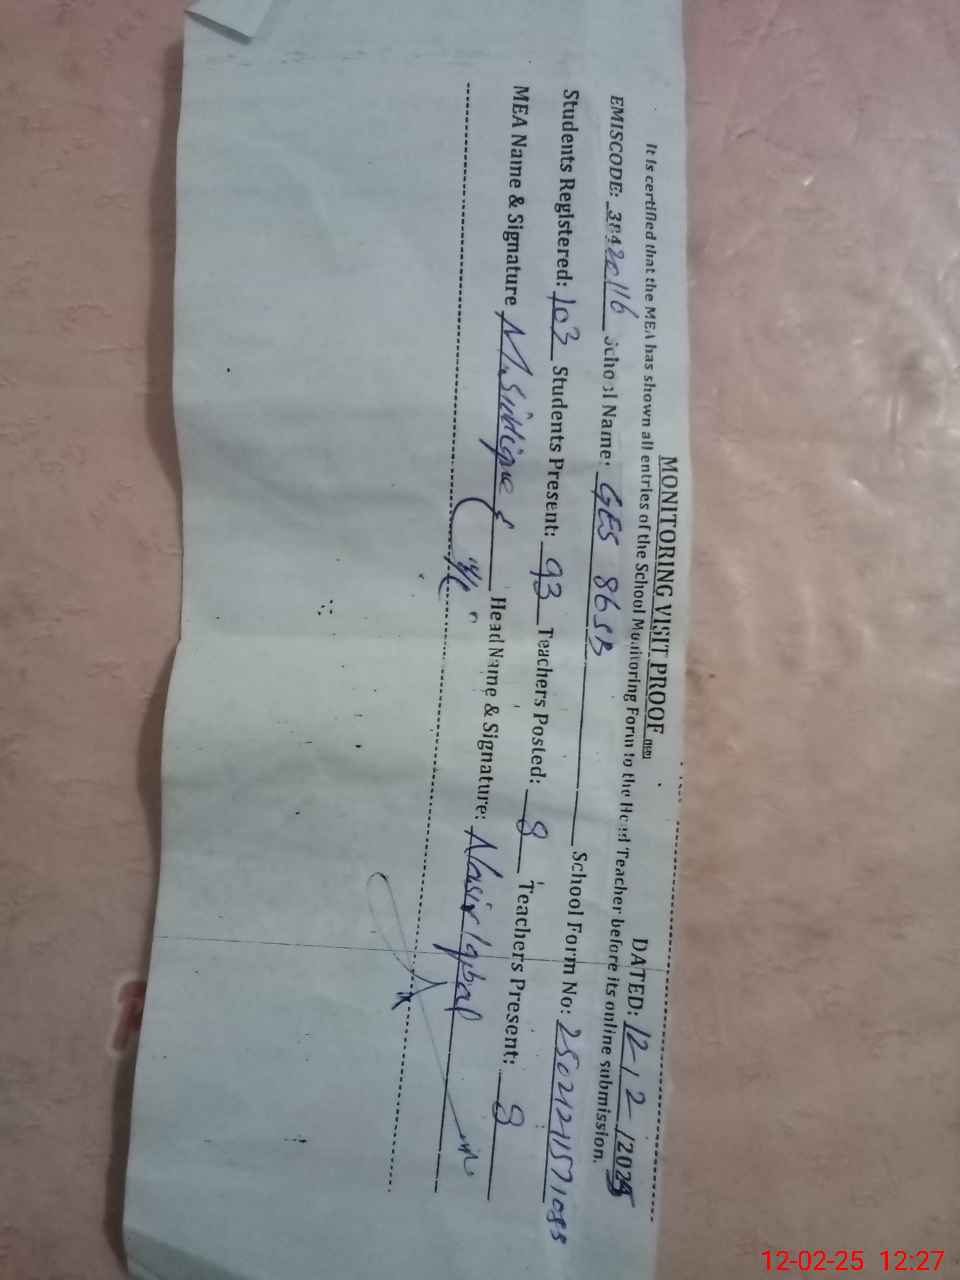 MONITORING VISIT PROOF
DATED: 12-12/2025
It is certified that the MEA has shown all entries of the School Monitoring Form to the Head Teacher before its online submission.
EMISCODE: School Name: GES 86SB School Form No:
Students Registered: 103 Students Present: 93 Teachers Posted: 8 Teachers Present: 8
MEA Name & Signature Head Name & Signature: Nasir Iqbal
12-02-25 12:27